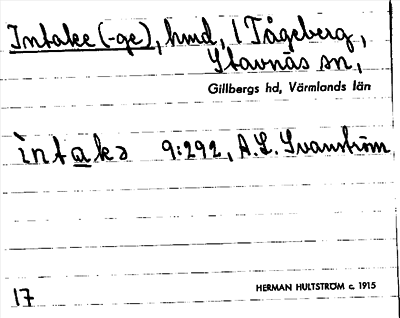 Intakee (-ge), hmd, 1 Tågeberg,
Stavnäs sn,
Gillbergs hd, Värmlands län
intakə 9:292, A.L. Svanström
17
HERMAN HULTSTRÖM c. 1915